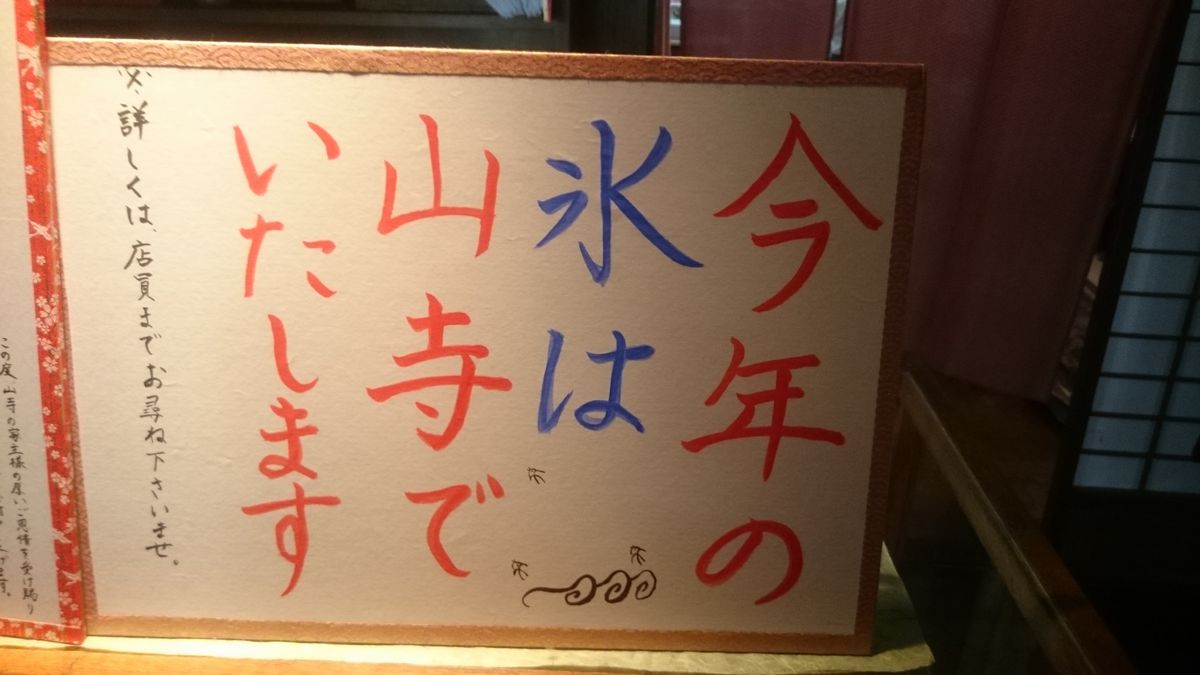 今年の
氷は
山寺で
いたします
※詳しくは、店員までお尋ね下さいませ。
この度山寺の家主様の厚いご恩情を受け賜り